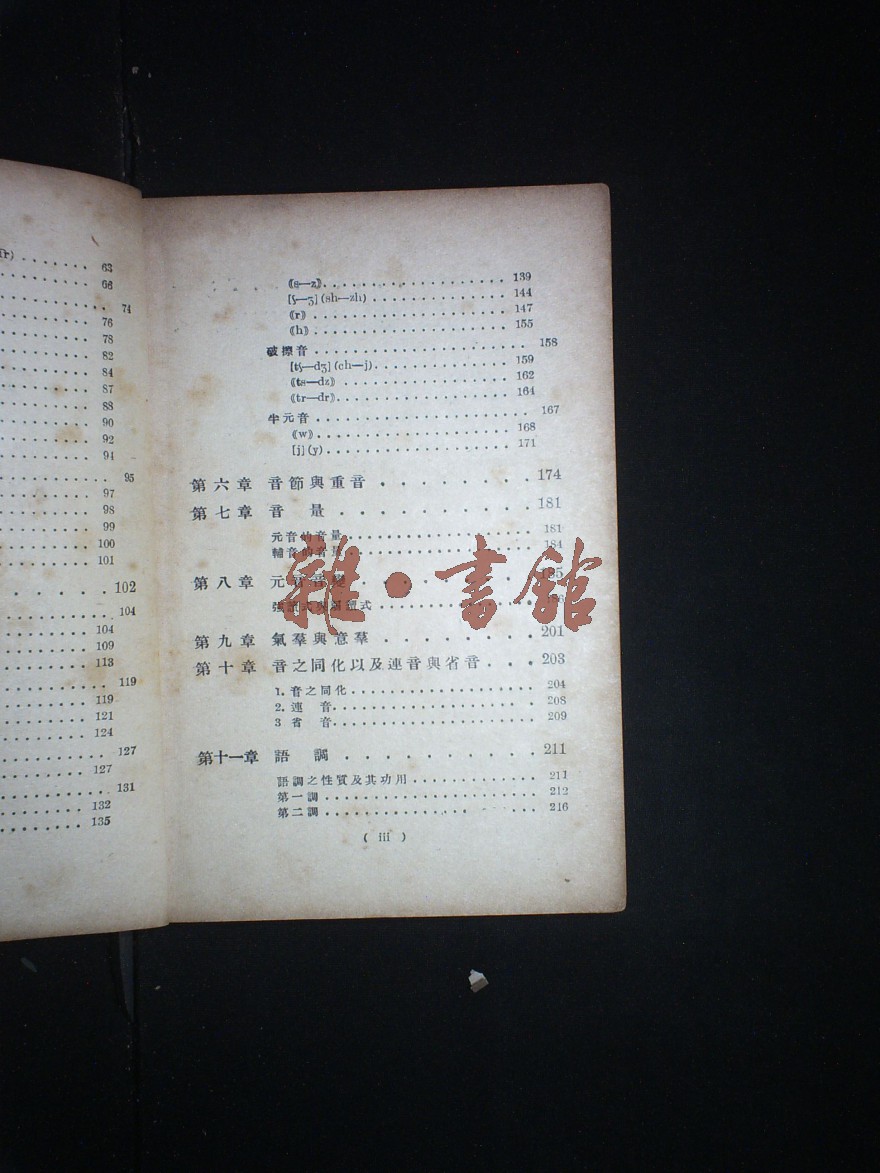 63
66
74
76
78
82
84
87
88
90
92
94
95
97
98
99
100
101
102
104
104
109
113
119
119
121
124
127
127
131
132
135
⟪s—z⟫ 139
[ʃ—ʒ] (sh—zh) 144
⟪r⟫ 147
⟪h⟫ 155
破擦音 158
[tʃ—dʒ] (ch—j) 159
⟪ts—dz⟫ 162
⟪tr—dr⟫ 164
半元音 167
⟪w⟫ 168
[j] (y) 171
第六章 音節與重音 174
第七章 音量 181
元音的音量 181
輔音的音量 184
第八章 元音音變 185
強讀式與弱讀式 186
第九章 氣羣與意羣 201
第十章 音之同化以及連音與省音 203
1. 音之同化 204
2. 連音 208
3 省音 209
第十一章 語調 211
語調之性質及其功用 211
第一調 212
第二調 216
( iii )
雜·書館